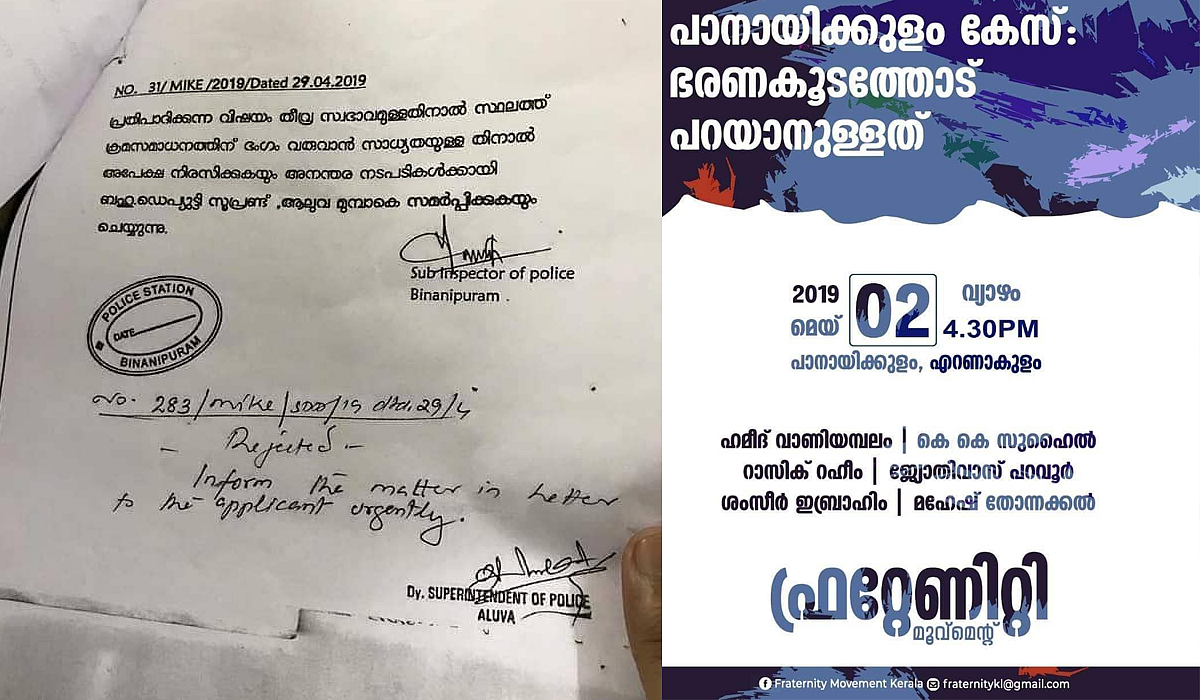 NO. 31/ MIKE /2019/Dated 29.04.2019
പ്രതിപാദിക്കുന്ന വിഷയം തീവ്ര സ്വഭാവമുള്ളതിനാൽ സ്ഥലത്ത്
ക്രമസമാധനത്തിന് ഭംഗം വരുവാൻ സാധ്യതയുള്ള തിനാൽ
അപേക്ഷ നിരസിക്കുകയും അനന്തര നടപടികൾക്കായി
ബഹു.ഡെപ്യുട്ടി സൂപ്രണ്ട് ,ആലുവ മുമ്പാകെ സമർപ്പിക്കുകയും
ചെയ്യുന്നു.
Sub Inspector of police
Binanipuram .
POLICE STATION
DATE
BINANIPURAM
No. 283/mike/SDO/19 dtd. 29/4
- Rejected -
Inform the matter in letter
to the applicant urgently.
Dy. SUPERINTENDENT OF POLICE
ALUVA
പാനായിക്കുളം കേസ്:
ഭരണകൂടത്തോട്
പറയാനുള്ളത്
2019 02 വ്യാഴം
മെയ് 4.30PM
പാനായിക്കുളം, എറണാകുളം
ഹമീദ് വാണിയമ്പലം | കെ കെ സുഹൈൽ
റാസിക് റഹീം | ജ്യോതിവാസ് പറവൂർ
ശംസീർ ഇബ്രാഹിം | മഹേഷ് തോന്നക്കൽ
ഫ്രറ്റേണിറ്റി
മൂവ്മെന്റ്
Fraternity Movement Kerala fraternitykl@gmail.com